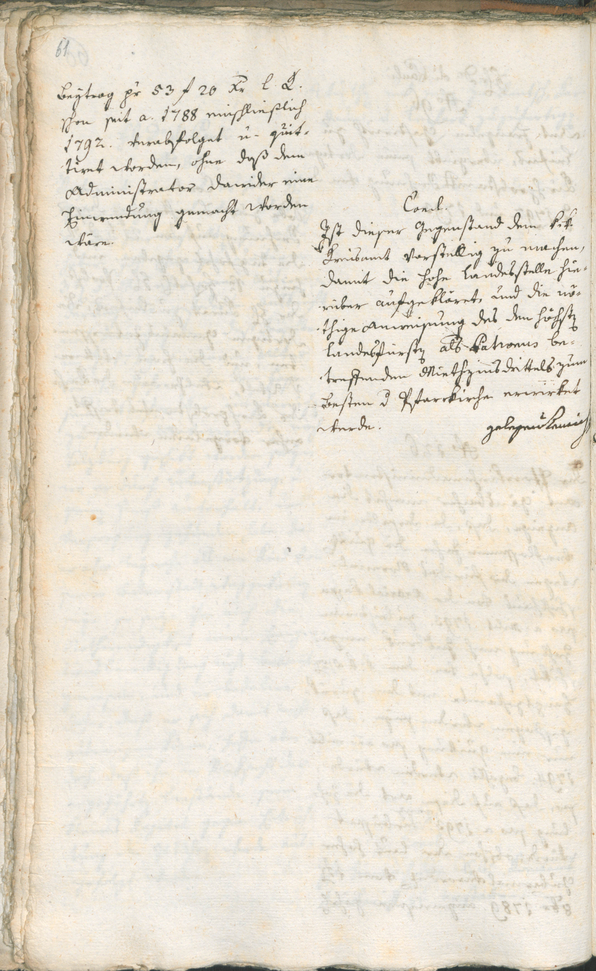 61
Beytrag pr 53 f 20 Kr l. A.
schon seit a. 1788 einschließlich
1792. verabfolget u. quit-
tiret worden, ohne daß dem
Administrator darwider eine
Einwendung gemacht worden
wäre.
Concl.
Ist dieser Gegenstand dem k:k:
Kreisamt vorstellig zu machen,
damit die hohe Landesstelle hie-
rüber aufgekläret, und die nö-
thige Anweisung des den höchsten
Landesfürsten als Patronus be-
treffenden Miethzinsdrittels zum
Besten d Pfarrkirche erwirket
werde.